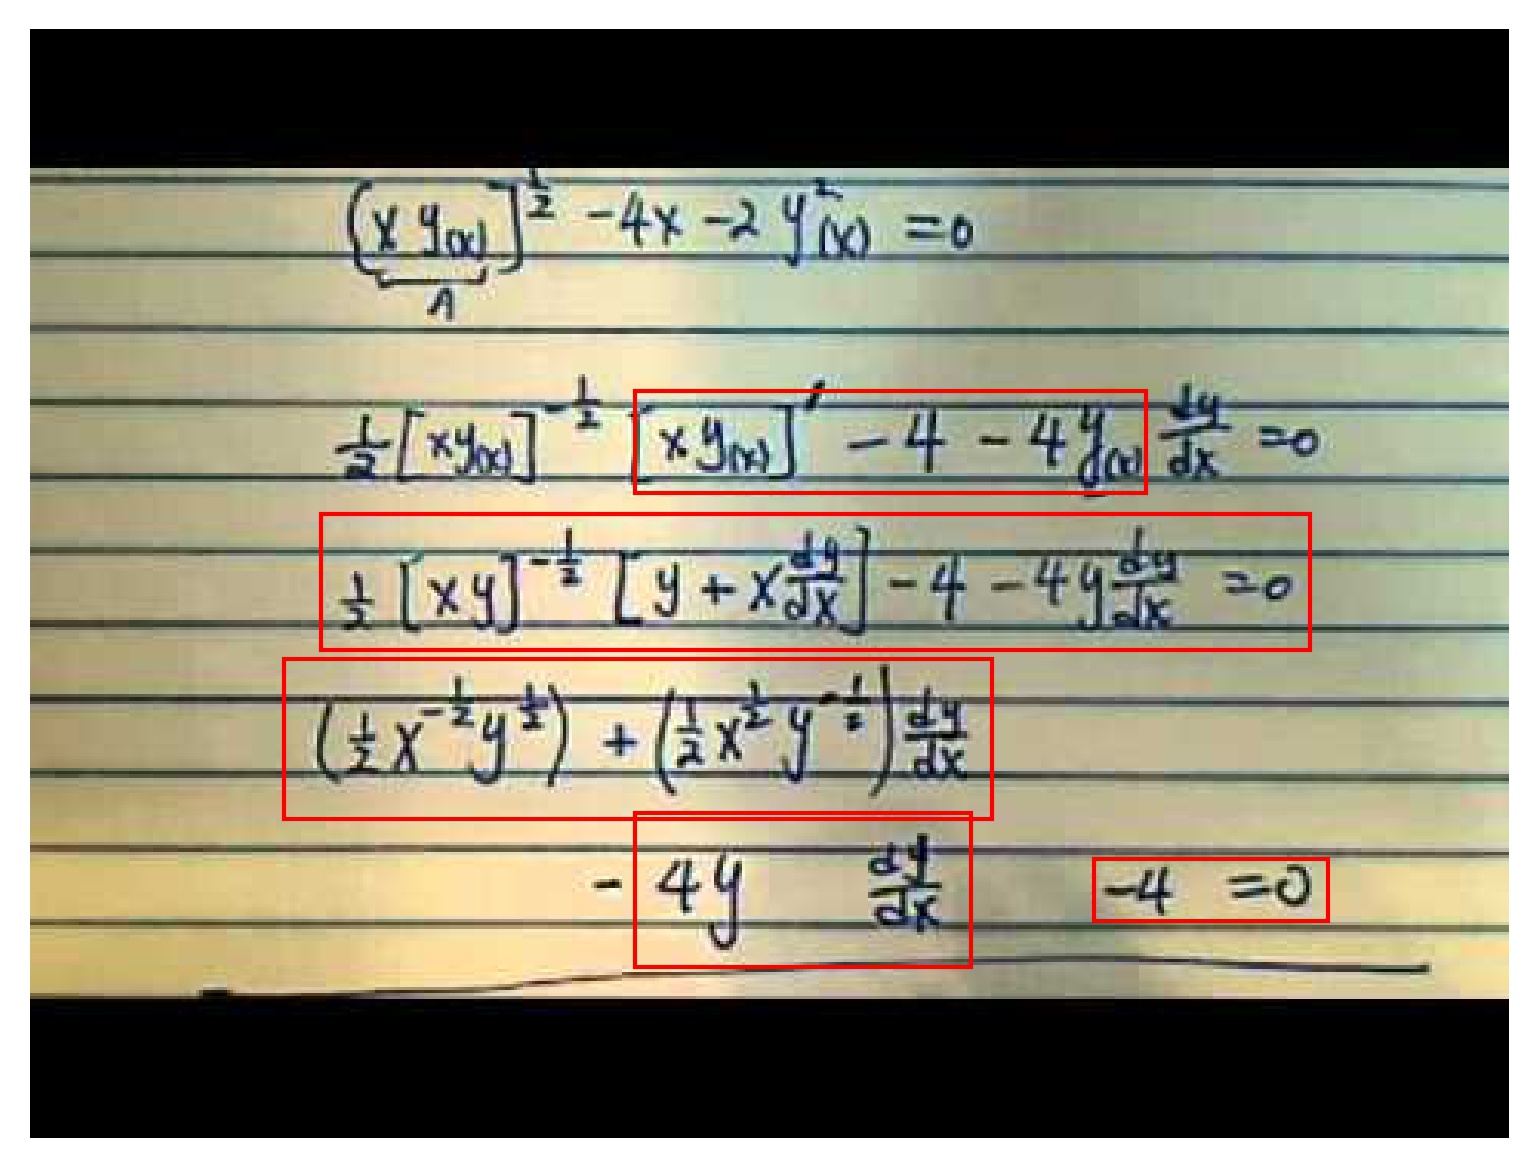 [x y(x)]^{1/2} -4x -2 y^2(x) =0
1
1/2 [xy(x)]^{-1/2} [x y(x)]' -4 -4 y(x) dy/dx =0
1/2 [xy]^{-1/2} [y + x dy/dx] -4 -4y dy/dx =0
(1/2 x^{-1/2} y^{1/2}) + (1/2 x^{1/2} y^{-1/2}) dy/dx
- 4y dy/dx -4 =0